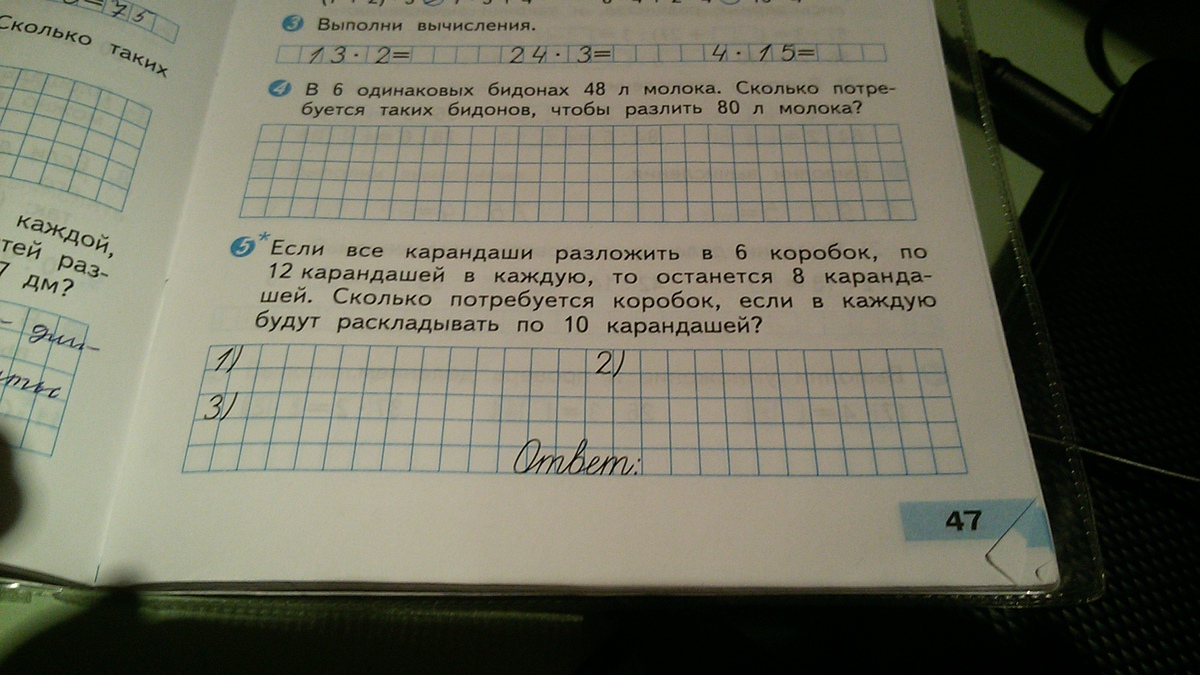 =75
Сколько таких
каждой,
тей раз-
7 дм?
3 Выполни вычисления.
13·2= 24·3= 4·15=
4 В 6 одинаковых бидонах 48 л молока. Сколько потре-
буется таких бидонов, чтобы разлить 80 л молока?
5* Если все карандаши разложить в 6 коробок, по
12 карандашей в каждую, то останется 8 каранда-
шей. Сколько потребуется коробок, если в каждую
будут раскладывать по 10 карандашей?
1) 2)
3)
Ответ:
47